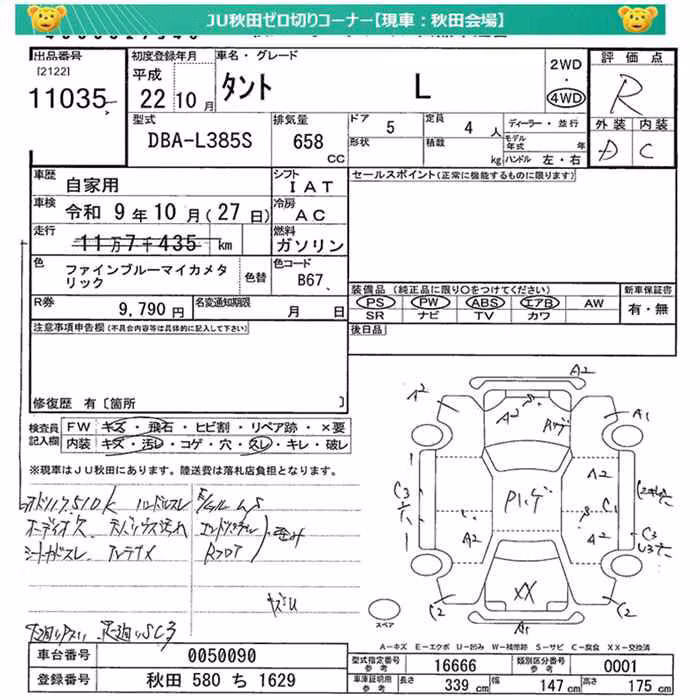 JU秋田ゼロ切りコーナー【現車：秋田会場】
出品番号
[2122]
11035
初度登録年月
平成
22年10月
車名・グレード
タント L
2WD
・
4WD
評価点
R
外装 内装
D C
型式
DBA-L385S
排気量
658
CC
ドア 5
定員 4 人
形状
積載 kg
ディーラー・並行
モデル年式 年
ハンドル 左・右
車歴
自家用
シフト
IAT
セールスポイント(正常に機能するものに限ります)
車検
令和 9年10月(27日)
冷房
AC
走行
11万7千435 km
燃料
ガソリン
色
ファインブルーマイカメタリック
色替
色コード
B67
装備品 (純正品に限り○をつけてください)
PS PW ABS エアB AW
SR ナビ TV カワ
新車保証書
有・無
R券
9,790円
名変通知期限
月 日
後日品
注意事項申告欄(不具合内容等は具体的に記入して下さい)
修復歴 有[箇所 ]
検査員記入欄
FW キズ・飛石・ヒビ割・リペア跡・×要
内装 キズ・汚レ・コゲ・穴・スレ・キレ・破レ
※現車はJU秋田にあります。陸送費は落札店負担となります。
ハンドルスレ
A2
A2
A2
A1
Rゲ
A2
C3
Pハゲ
C1
A2
A2
C3
XX
C2
C2
A1
スペア
A－キズ E－エクボ U－凹み W－補修跡 S－サビ C－腐食 XX－交換済
車台番号
0050090
型式指定番号
参考
16666
類別区分番号
参考
0001
登録番号
秋田 580 ち 1629
車庫証明用
参考
長さ 339 cm
幅 147 cm
高さ 175 cm